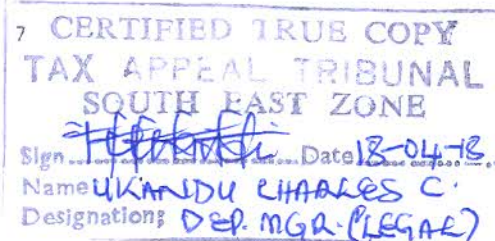 7 CERTIFIED TRUE COPY
TAX APPEAL TRIBUNAL
SOUTH EAST ZONE
Sign.............Date 18-04-18
Name UKANDU CHARLES C.
Designation: DEP. MGR. (LEGAL)